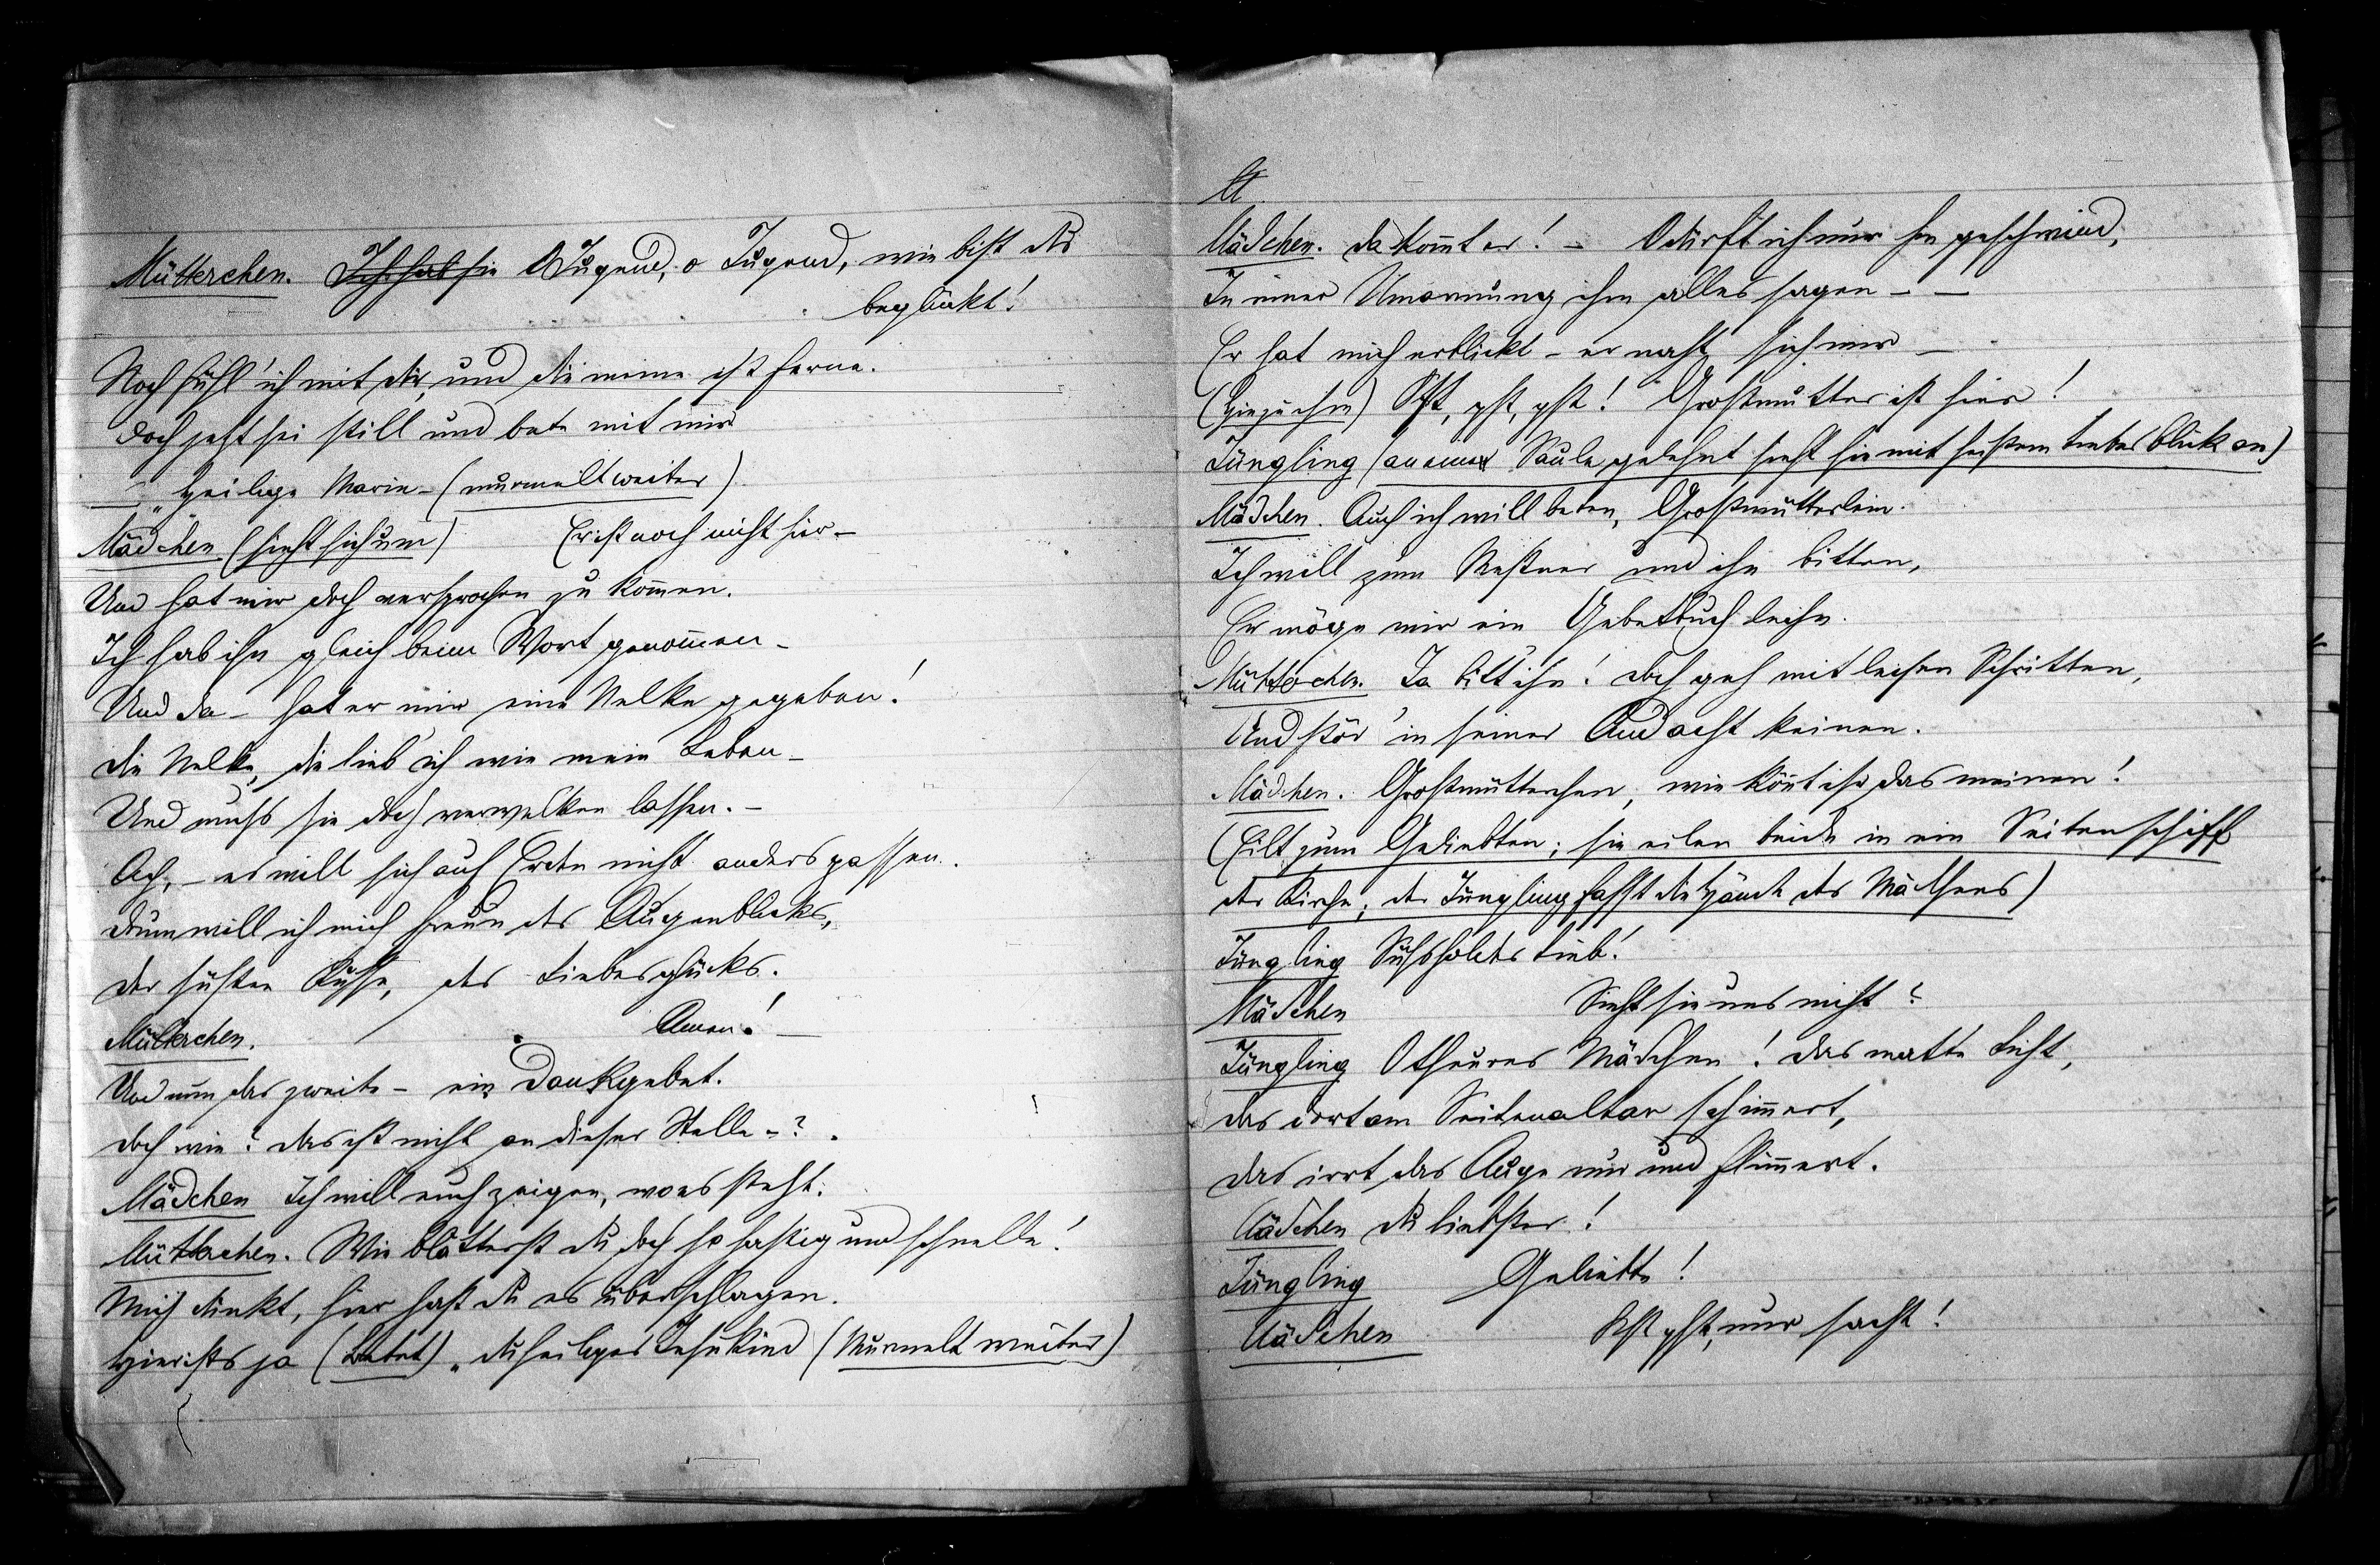 Mütterchen. Ich hab sie O Jugend, o Jugend, wie bist du
beglückt!
Noch fühl' ich mit dir, und die meine ist ferne.
Doch jetzt sei still und bete mit mir
„Heilige Marie – (murmelt weiter)
Mädchen (sieht sich um) Er ist noch nicht hier –
Und hat mir doch versprochen zu kom̄en.
Ich hab ihn gleich beim Wort genom̄en –
Und da – hat er mir eine Nelke gegeben!
Die Nelke, die lieb' ich wie mein Leben –
Und muß sie doch verwelken lassen. –
Ach, – es will sich auf Erden nicht anders passen.
Drum will ich mich freun des Augenblicks,
Der süßen Küsse, des Liebesglücks.
Mütterchen. Amen! –
Und nun das zweite – ein Dankgebet.
Doch wie? Das ist nicht an dieser Stelle –?
Mädchen Ich will euch zeigen, wo es steht.
Mütterchen. Wie blätterst du doch so hastig und schnelle!
Mich dünkt, hier hast du es überschlagen.
Hier ists ja (betet) „Du heiliges Jesukind (Murmelt weiter)
Mädchen. Da kom̄t er! – O dürft ich nur hin geschwind,
In einer Umarmung ihm alles sagen – –
Er hat mich erblickt – er naht sich mir –
(Hin zu ihm) Pst, pst, pst! Großmutter ist hier!
Jüngling (an einer Säule gelehnt sieht sie mit heißem Liebesblick an)
Mädchen. Auch ich will beten, Großmütterlein.
Ich will zum Meßner und ihn bitten,
Er möge mir ein Gebetbuch leihn.
Mütterchen. Ja bitt ihn! Doch geh mit leisen Schritten,
Und stör' in seiner Andacht keinen.
Mädchen. Großmütterchen, wie kön̄t ihr das meinen!
(Eilt zum Geliebten; sie eilen beide in ein Seitenschiff
der Kirche; der Jüngling faßt die Hände des Mädchens)
Jüngling Süßholdes Lieb!
Mädchen Sieht sie uns nicht?
Jüngling O theures Mädchen! Das matte Licht,
Das dort am Seitenaltar schim̄ert,
Das irrt das Auge nur und flim̄ert.
Mädchen Du liebster!
Jüngling Geliebte!
Mädchen Pst pst, nur sacht!